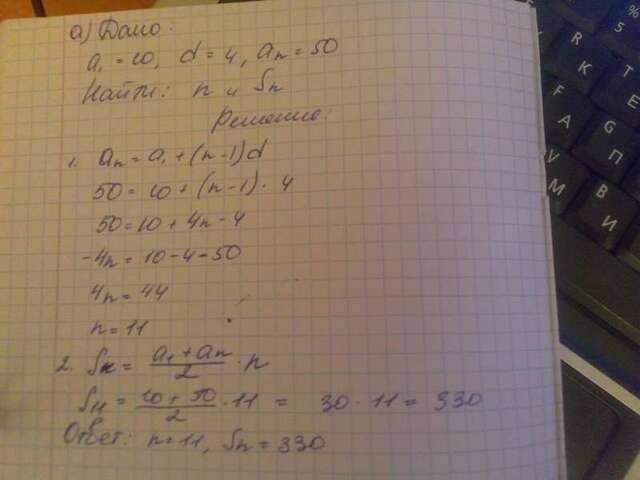 а) Дано:
a₁ = 10, d = 4, aₙ = 50
Найти: n и Sₙ
Решение:
1. aₙ = a₁ + (n-1)d
50 = 10 + (n-1)·4
50 = 10 + 4n - 4
-4n = 10 - 4 - 50
4n = 44
n = 11
2. Sₙ = (a₁ + aₙ)/2 · n
S₁₁ = (10 + 50)/2 · 11 = 30 · 11 = 330
Ответ: n = 11, Sₙ = 330
%
5
R
К
Е
T
Е
F
А
G
П
V
М
B
И